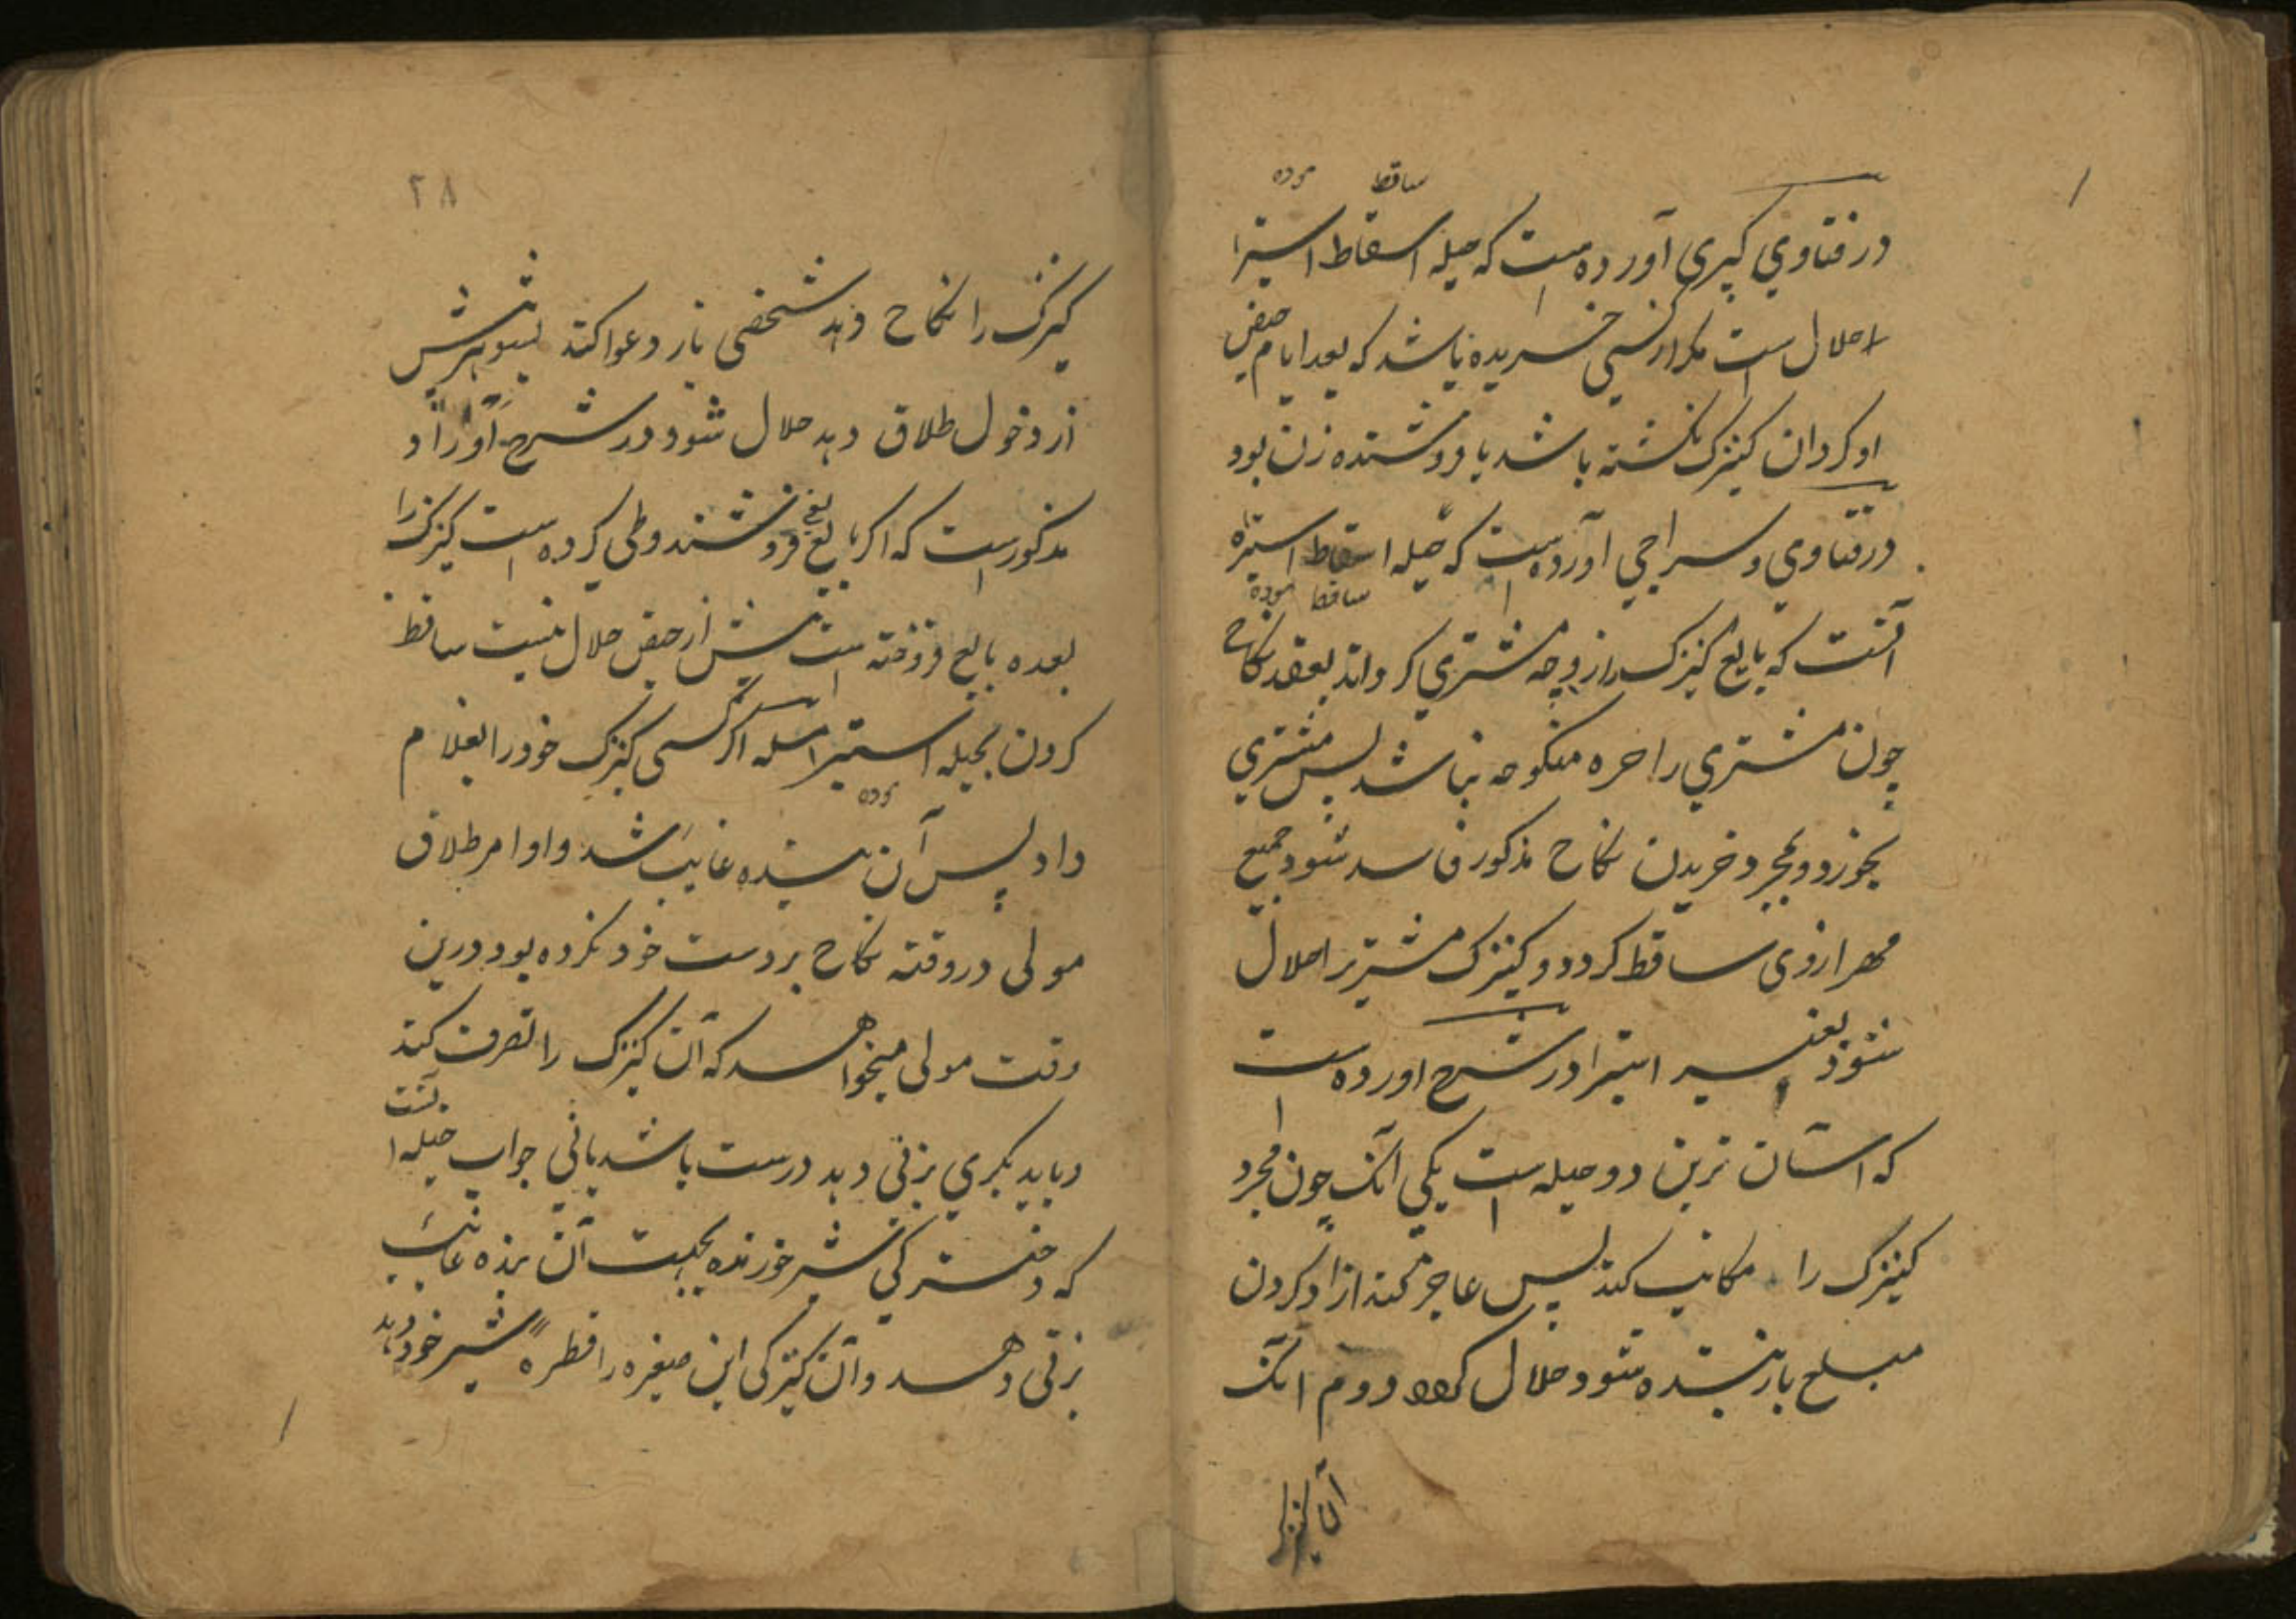 ساقط
در فتاوي کبري آورده است که حیله اسقاط استبرا
حلال است مکر از کسی خریده باشد که بعد ایام حیض
او کردان کنیزک نکشته باشد یا فروشنده زن بود
در فتاوي و سراجي آورده است که حیله اسقاط استبره
ساقط
آنست که بایع کنیزک را زوجه مشتري کرداند بعقد نکاح
چون مشتري را حره منکوحه نباشد پس مشتري
بخرد و بمجرد خریدن نکاح مذکور فاسد شود جمیع
مهر از وی ساقط کردد و کنیزک مشتریرا حلال
شود بغیر استبرا در شرح اورده است
که آسان ترین دو حیله است یکی آنک چون مجرد
کنیزک را مکاتب کند پس عاجز کند از ازاد کردن
مبلغ باز بنده شود حلال کردد دوم انک
آن کنیزک
٢٨
کنیزک را نکاح دهد شخصی باز دعوا کند بشوهرش
از دخول طلاق دهد حلال شود در شرح اوراد
مذکور است که اکر بایع فروشند وطی کرده است کنیزک را
بعده بایع فروخته است پیش از حیض حلال نیست ساقط
کردن بحیله استبرا مسله اکر کسی کنیزک خود را بغلام
داد پس آن بنده غایب شد و او امر طلاق
مولی در وقته نکاح بر دست خود نکرده بود درین
وقت مولی میخواهد که آن کنیزک را تصرف کند
و یا بدیکري بزنی دهد درست باشد یا نی جواب حیله
آنست
که دخترکی شیر خورنده بجهت آن بنده غایب
بزنی دهد و آن کنیزکی این صغیره را قطره شیر خود دهد